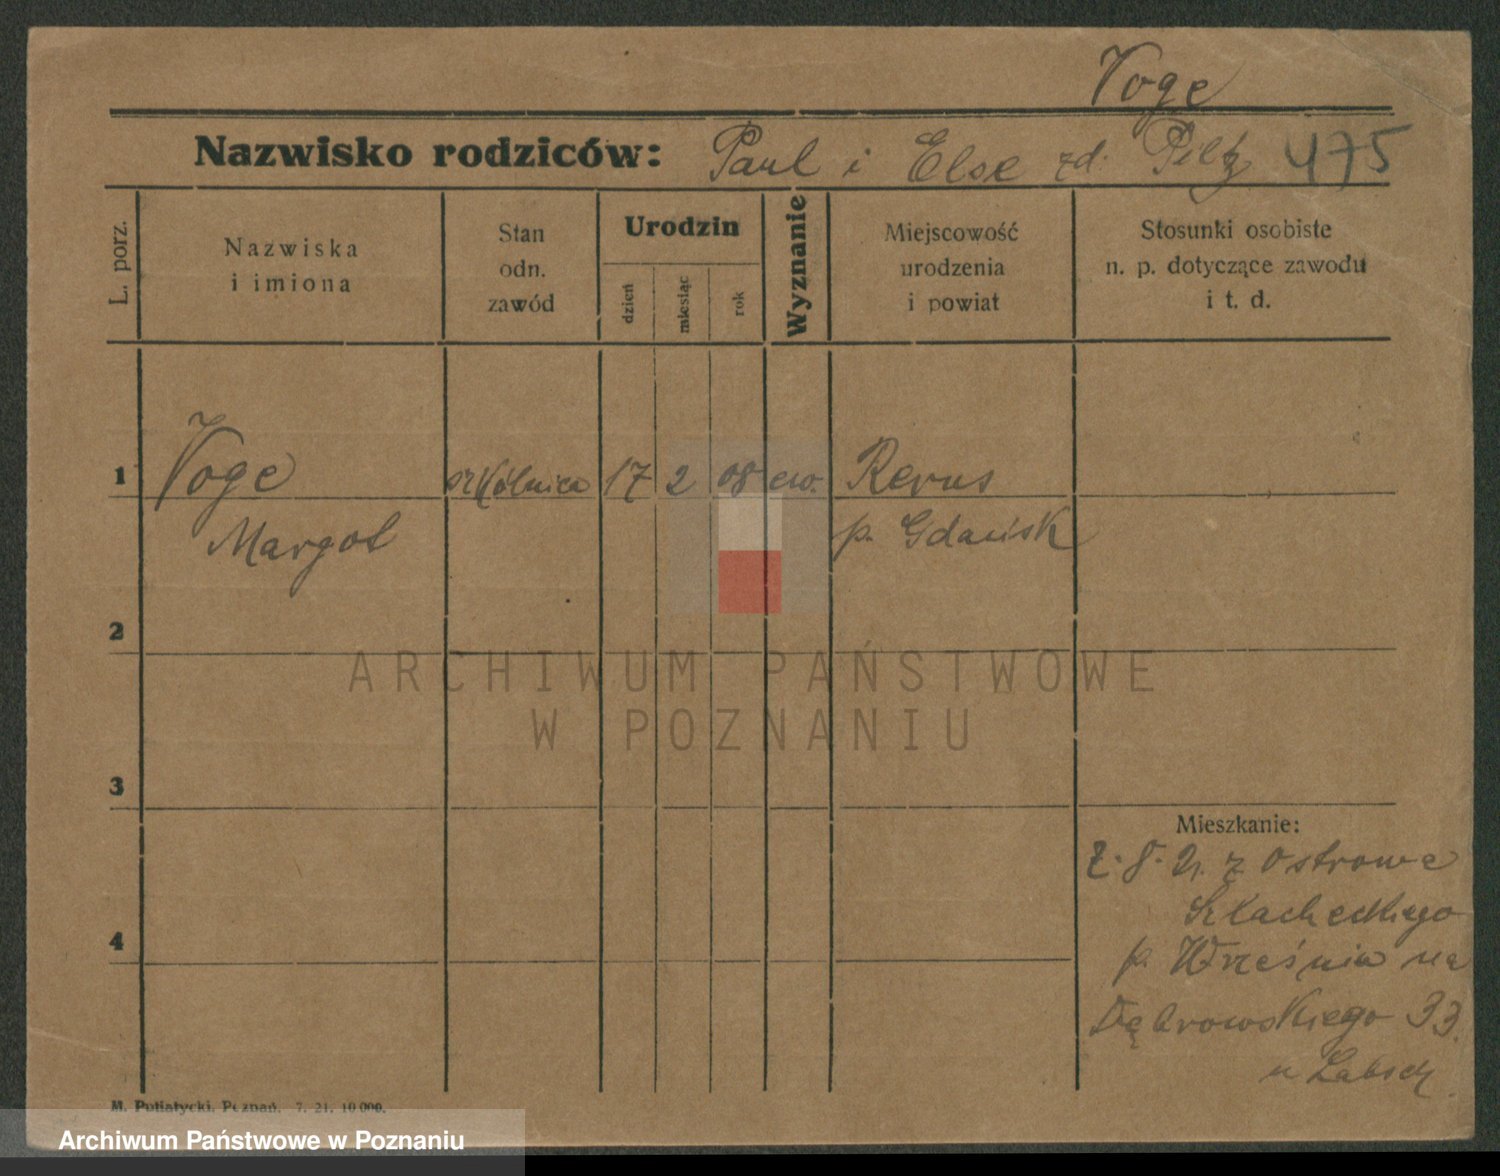 Voge
Nazwisko rodziców: Paul i Else zd. Piltz 475
L. porz.
Nazwiska
i imiona
Stan
odn.
zawód
Urodzin
dzień
miesiąc
rok
Wyznanie
Miejscowość
urodzenia
i powiat
Stosunki osobiste
n. p. dotyczące zawodu
i t. d.
1 Voge szkólnica 17 2 08 ew.
Margot p. Gdańsk
2
ARCHIWUM PAŃSTWOWE
W POZNANIU
3
Mieszkanie:
z Ostrowa
Szlacheckiego
4
p. Września na
Dąbrowskiego 33.
u
M. Putiatycki, Poznań. 7. 21. 10 000.
Archiwum Państwowe w Poznaniu